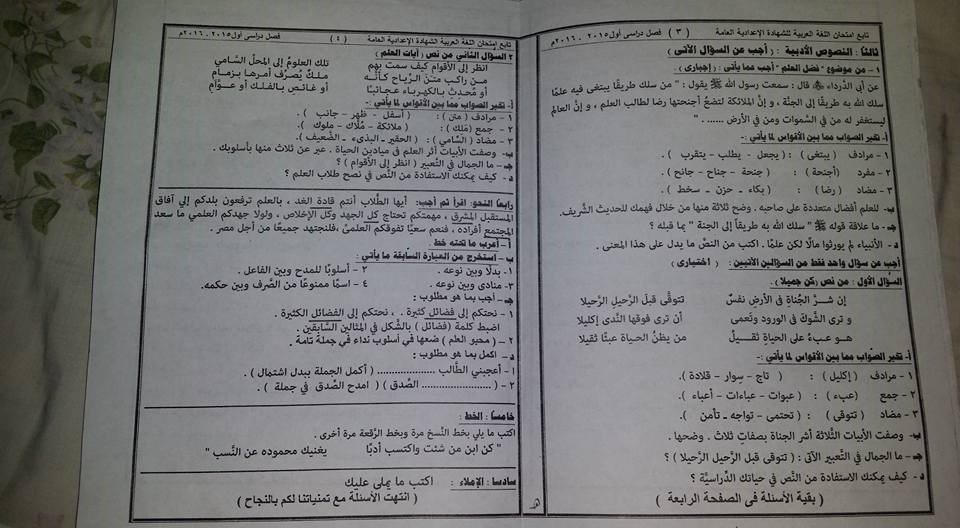 تابع إمتحان اللغة العربية للشهادة الإعدادية العامة ( ٣ ) فصل دراسى أول ٢٠١٥ ـ ٢٠١٦م
ثالثًا : النصوص الأدبية : ( أجب عن السؤال الآتى )
١ – من موضوع " فضل العلم " أجب مما يأتى : ( إجبارى )
عن أبى الدرداء قال : سمعت رسول الله ﷺ يقول : " من سلك طريقًا يبتغى فيه علمًا
سلك الله به طريقًا إلى الجنة ، وإنَّ الملائكة لتضعُ أجنحتها رضا لطالب العلم ، وإنَّ العالم
ليستغفر له من فى السَّموات ومن فى الأرض ...... . "
أ- تخير الصواب مما بين الأقواس لما يأتى :-
١ – مرادف ( يبتغى ) : ( يجعل – يطلب – يتقرب ) .
٢ – مفرد ( أجنحة ) : ( جنحة – جناح – جانح ).
٣ – مضاد ( رضا ) : ( بكاء – حزن – سخط ) .
ب- للعلم أفضال متعددة على صاحبه . وضح ثلاثة منها من خلال فهمك للحديث الشَّريف.
جـ – ما علاقة قوله ﷺ " سلك الله به طريقًا إلى الجنة " بما قبله ؟
د – الأنبياء لم يورثوا مالًا لكن علمًا . اكتب من النصّ ما يدل على هذا المعنى .
أجب عن سؤال واحد فقط من السؤالين الآتيين : ( اختيارى )
السؤال الأول : من نص (كن جميلا) .
إن شرَّ الجُناةِ فى الأرضِ نفسٌ تتوقَّى قبلَ الرحيلِ الرَّحيلا
و ترى الشَّوكَ فى الورودِ وتَعمى أن ترى فوقها النَّدى إكليلا
هو عبءٌ على الحياةِ ثقيـلٌ من يظنُّ الحياة عبئًا ثقيلا
أ- تخير الصواب مما بين الأقواس لما يأتى :-
١ – مرادف ( إكليل ) : ( تاج – سِوار – قلادة ).
٢ – جمع ( عبء ) : ( عبوات – عباءات – أعباء ).
٣ – مضاد ( تتوقى ) : ( تحتمى – تواجه – تأمن ).
ب- وصفت الأبيات الثَّلاثة أشر الجناة بصفاتٍ ثلاث . وضحها .
جـ – ما الجمال فى التَّعبير الآتى : ( تتوقى قبل الرَّحيل الرَّحيلا ) ؟
د – كيف يمكنك الاستفادة من النَّص فى حياتك الدِّراسيَّة ؟
( بقية الأسئلة فى الصفحة الرابعة )
تابع إمتحان اللغة العربية للشهادة الإعدادية العامة ( ٤ ) فصل دراسى أول ٢٠١٥ ـ ٢٠١٦م
٢ السؤال الثانى من نص ( آيات العلم )
انظر إلى الأقوام كيف سمت بهم تلك العلومُ إلى المحلِّ السَّامى
من راكبٍ متنَ الرِّياح كأنَّه ملكٌ يُصرِّفُ أمرها بزمام
أو مُحدِثٍ بالكهرباء عجائبًا أو غائصٍ بالفلك أو عوَّام
أ- تخير الصواب مما بين الأقواس لما يأتى :-
١ – مرادف ( متن ) : ( أسفل – ظهر – جانب ) .
٢ – جمع ( مَلك ) : ( ملائكة – مُلَّاك – ملوك ).
٣ – مضاد ( السَّامى ) : ( الحقير – البذىء – الضَّعيف ).
ب- وصفت الأبيات أثر العلم فى ميادين الحياة . عبر عن ثلاث منها بأسلوبك .
جـ – ما الجمال فى التَّعبير ( انظر إلى الأقوام ) ؟
د – كيف يمكنك الاستفادة من النَّص فى نصح طلاب العلم ؟
رابعًا النحو: اقرأ ثم أجب: أيها الطُّلاب أنتم قادة الغد ، بالعلم ترفعون بلدكم إلى آفاق
المستقبل المشرق ، مهمتكم تحتاج كل الجهد وكل الإخلاص ، ولولا جهدكم العلمي ما سعد
المجتمع أفراده ، فنعم سعيًا تفوقكم العلمىُّ، فلنجتهد جميعًا من أجل مصر .
أ – أعرب ما تحته خط .
ب – استخرج من العبارة السابقة ما يأتى :
١ – بدلًا وبين نوعه . ٢ – أسلوبًا للمدح وبين الفاعل .
٣– منادى وبين نوعه . ٤ – اسمًا ممنوعًا من الصَّرف وبين حكمه .
جـ – أجب بما هو مطلوب :
١ – نحتكم إلى فضائل كثيرة . ، نحتكم إلى الفضائل الكثيرة .
اضبط كلمة (فضائل ) بالشَّكل فى المثالين السَّابقين .
٢ – ( محبو العلم ) ضعها فى أسلوب نداء فى جملة تامَّة .
د – اكمل بما هو مطلوب :
١ – أعجبنى الطَّالب .................. ( أكمل الجملة ببدل اشتمال ) .
٢ – ( .................. الصِّدق ) ( امدح الصِّدق فى جملة ) .
خامسًا : الخط :
اكتب ما يلي بخط النَّسخ مرة وبخط الرُّقعة مرة أخرى .
" كن ابن من شئت واكتسب أدبًا يغنيك محموده عن النَّسب "
سادسًا : الإملاء : اكتب ما يملى عليك
( انتهت الأسئلة مع تمنياتنا لكم بالنجاح )